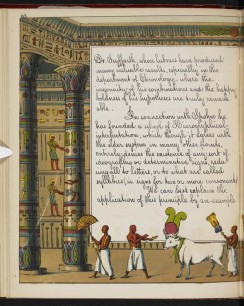 De Seyffarth, whose labours have produced
many valuable results, especially in the
department of Chronology, where the
ingenuity of his combinations and the happy
boldness of his hypotheses are truly remark-
able.
In connection with Spohn he
has founded a school of Hieroglyphical
interpretation which though it agrees with
the older system in many other points,
entirely denies the existence of any sort of
ideographic or determinative signs, redu-
cing all to letters, or to what are called
syllabics, i.e. signs for two or more consonants.
We can best explain the
application of this principle by an example